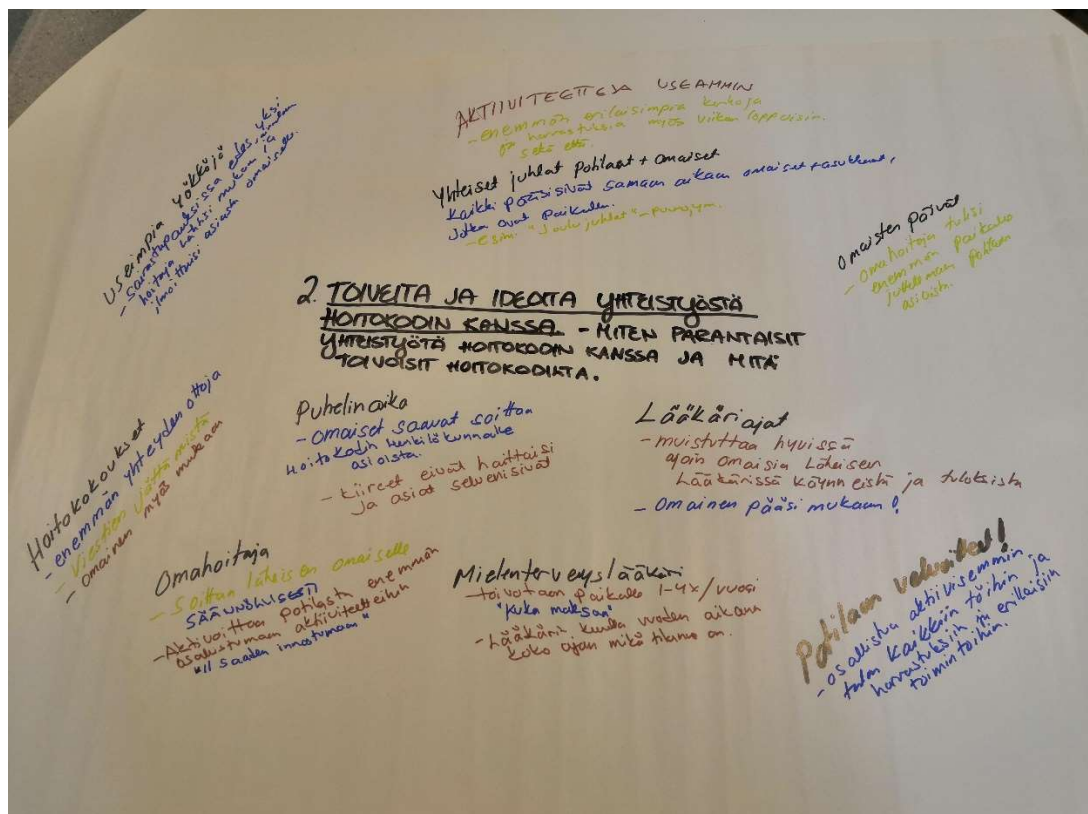 AKTIIVITEETTEJA USEAMMIN
- enemmän erilaisimpia
harrastuksia myös viikonloppuisin.
sekä että
Yhteiset juhlat Potilaat + omaiset
Kaikki pääsisivät samaan aikaan omaiset + asukkaat,
jotka ovat paikalla.
- esim. "Joulujuhlat"
Useimpia yökköjä
- sairastapauksissa edes yksi
hoitaja lähtisi mukaan ja
ilmoittaisi asiasta omaiselle.
Omaisten päivät
- omahoitaja tulisi
enemmän paikalle
juttelemaan potilaan
asioista.
2. TOIVEITA JA IDEOITA YHTEISTYÖSTÄ
HOITOKODIN KANSSA - MITEN PARANTAISIT
YHTEISTYÖTÄ HOITOKODIN KANSSA JA MITÄ
TOIVOISIT HOITOKODILTA.
Hoitokokoukset
- enemmän yhteyden ottoja
- Viestien jättämistä
- omainen myös mukaan
Puhelinaika
- Omaiset saavat soittaa
Hoitokodin Henkilökunnalle
asioista.
- kiireet eivät haittaisi
ja asiat selvenisivät
Lääkäriajat
- muistuttaa hyvissä
ajoin omaisia Läheisen
Lääkärissä käynneistä ja tuloksista
- Omainen pääsi mukaan!
Omahoitaja
- Soittaa läheisen omaiselle
SÄÄNNÖLLISESTI
- Aktivoittaa potilasta enemmän
osallistumaan aktiviteetteihin
"II saaden innostumaan"
Mielenterveyslääkäri
- toivotaan paikalle 1-4x/vuosi
"Kuka maksaa"
- Lääkärit kuulla vuoden aikana
koko ajan mikä tilanne on.
Potilaan velvoitteet!
- osallistua aktiivisemmin
talon kaikkiin töihin ja
harrastuksiin ja erillaisiin
toimintoihin.